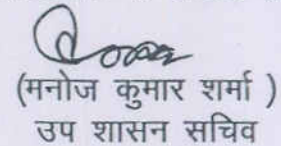 (मनोज कुमार शर्मा )
उप शासन सचिव